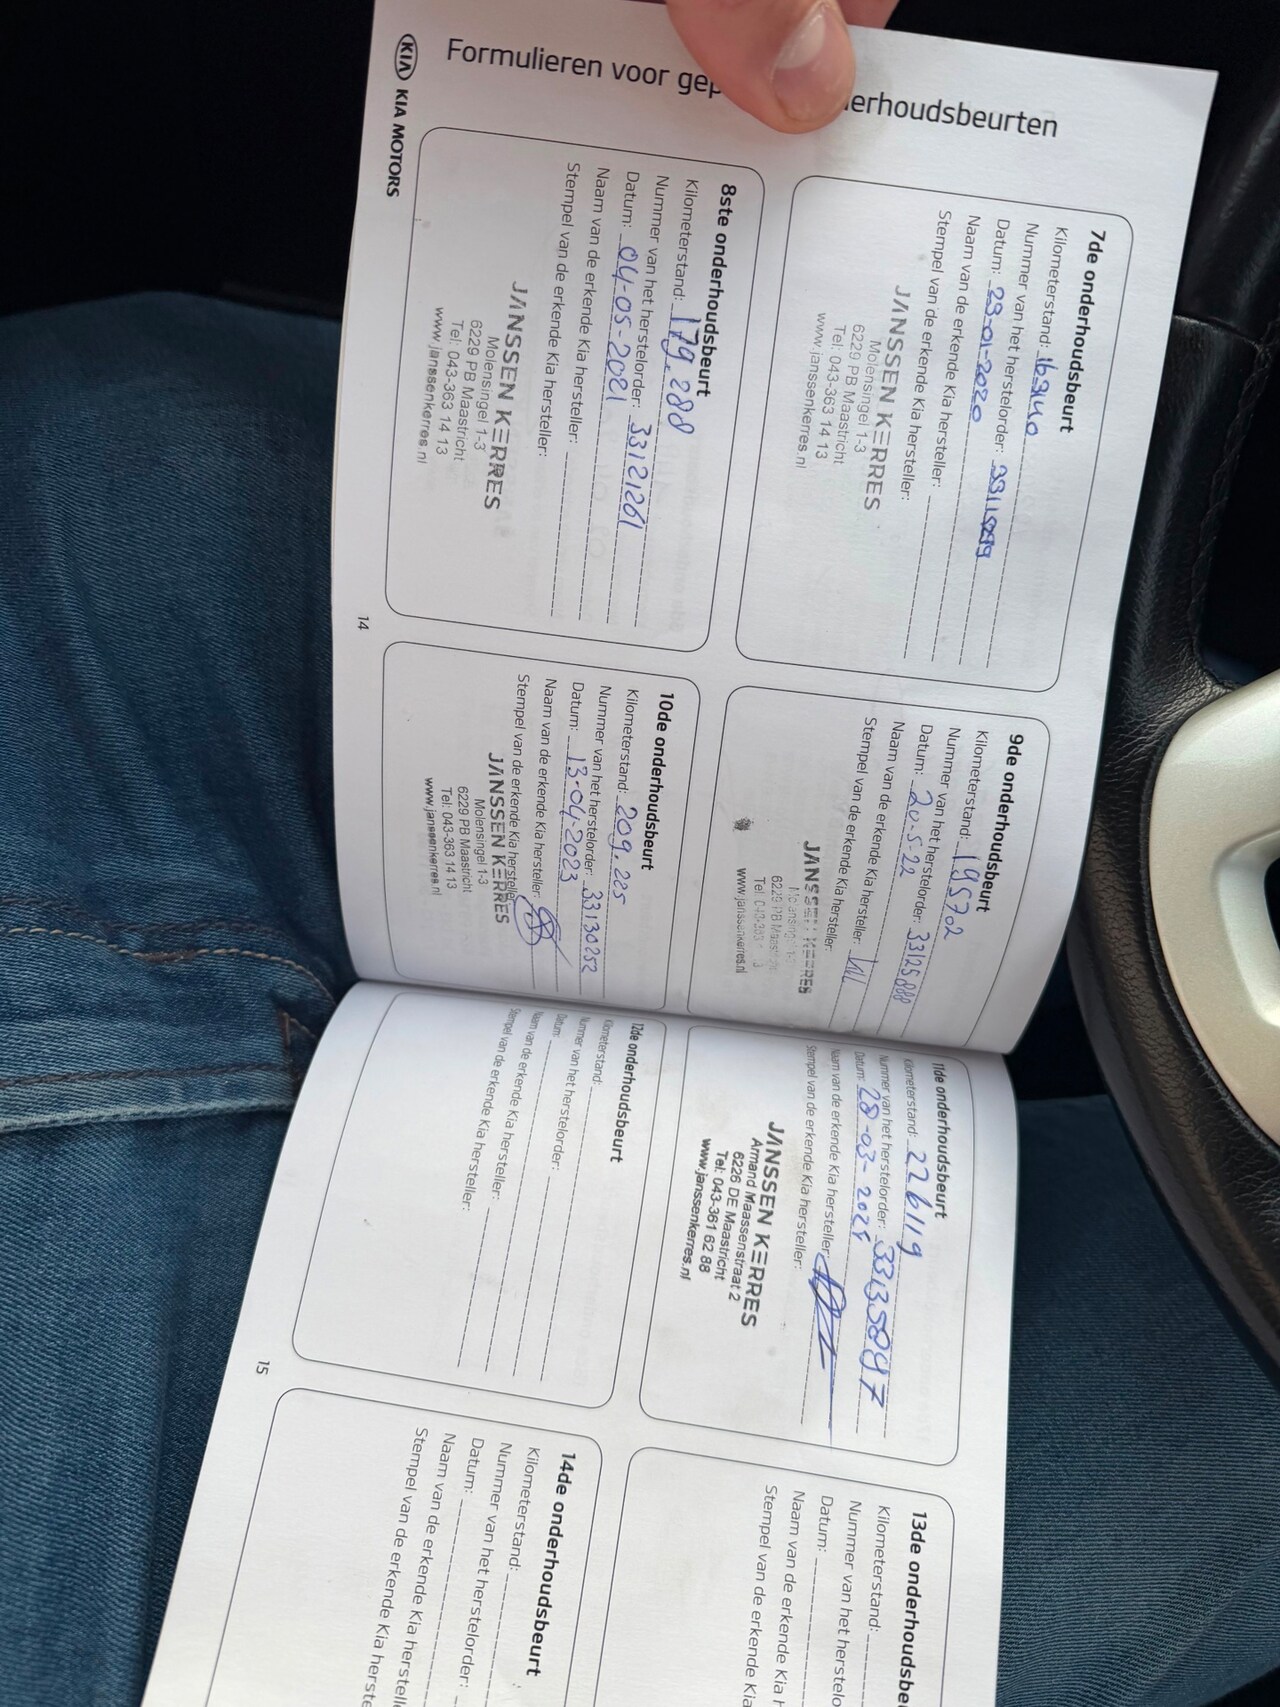 KIA KIA MOTORS
Formulieren voor gep erhoudsbeurten
7de onderhoudsbeurt
Kilometerstand:
Nummer van het herstelorder:
Datum: 29-01-2020
Naam van de erkende Kia hersteller:
Stempel van de erkende Kia hersteller:
JANSSEN KERRES
Molensingel 1-3
6229 PB Maastricht
Tel: 043-363 14 13
www.janssenkerres.nl
8ste onderhoudsbeurt
Kilometerstand: 179.288
Nummer van het herstelorder: 33121261
Datum: 04-05-2021
Naam van de erkende Kia hersteller:
Stempel van de erkende Kia hersteller:
JANSSEN KERRES
Molensingel 1-3
6229 PB Maastricht
Tel: 043-363 14 13
www.janssenkerres.nl
14
9de onderhoudsbeurt
Kilometerstand: 195702
Nummer van het herstelorder: 33125888
Datum: 20-5-22
Naam van de erkende Kia hersteller:
Stempel van de erkende Kia hersteller:
JANSSEN KERRES
6229 PB Maastricht
www.janssenkerres.nl
10de onderhoudsbeurt
Kilometerstand: 209.225
Nummer van het herstelorder: 33130252
Datum: 13-04-2023
Naam van de erkende Kia hersteller:
Stempel van de erkende Kia hersteller
JANSSEN KERRES
Molensingel 1-3
6229 PB Maastricht
Tel: 043-363 14 13
www.janssenkerres.nl
11de onderhoudsbeurt
Kilometerstand: 226119
Nummer van het herstelorder: 33135897
Datum: 28-03-2024
Naam van de erkende Kia hersteller:
Stempel van de erkende Kia hersteller:
JANSSEN KERRES
Armand Maassenstraat 2
6226 DE Maastricht
Tel: 043-361 62 88
www.janssenkerres.nl
12de onderhoudsbeurt
Kilometerstand:
Nummer van het herstelorder:
Datum:
Naam van de erkende Kia hersteller:
Stempel van de erkende Kia hersteller:
15
13de onderhoudsbe
Kilometerstand:
Nummer van het herstelo
Datum:
Naam van de erkende Kia h
Stempel van de erkende Kia
14de onderhoudsbeurt
Kilometerstand:
Nummer van het herstelorder:
Datum:
Naam van de erkende Kia herstell
Stempel van de erkende Kia herste